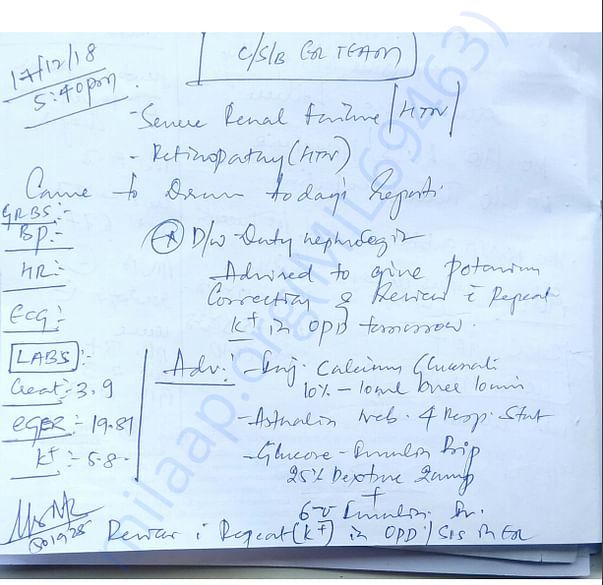 17/12/18
5:40pm
C/S/B ER TEAM
- Severe Renal Failure / HTN
- Retinopathy (HTN)
Came to Show today's Reports
GRBS:-
BP:-
HR:-
ECG:-
D/W Duty nephrologist
Advised to give Potassium
Correction & Review c Repeat
K+ in OPD tomorrow.
LABS :-
Creat: 3.9
eGFR :- 19.81
K+ :- 5.8
Adv:- Inj. Calcium Gluconate
10% - 10ml over 10min
- Asthalin neb. 4 Resp. Stat
- Glucose - Insulin Drip
25% Dextrose 2amp
+
6-U Insulin
Review c Repeat (K+) in OPD / SOS in ER
milaap.org(MIL69463)